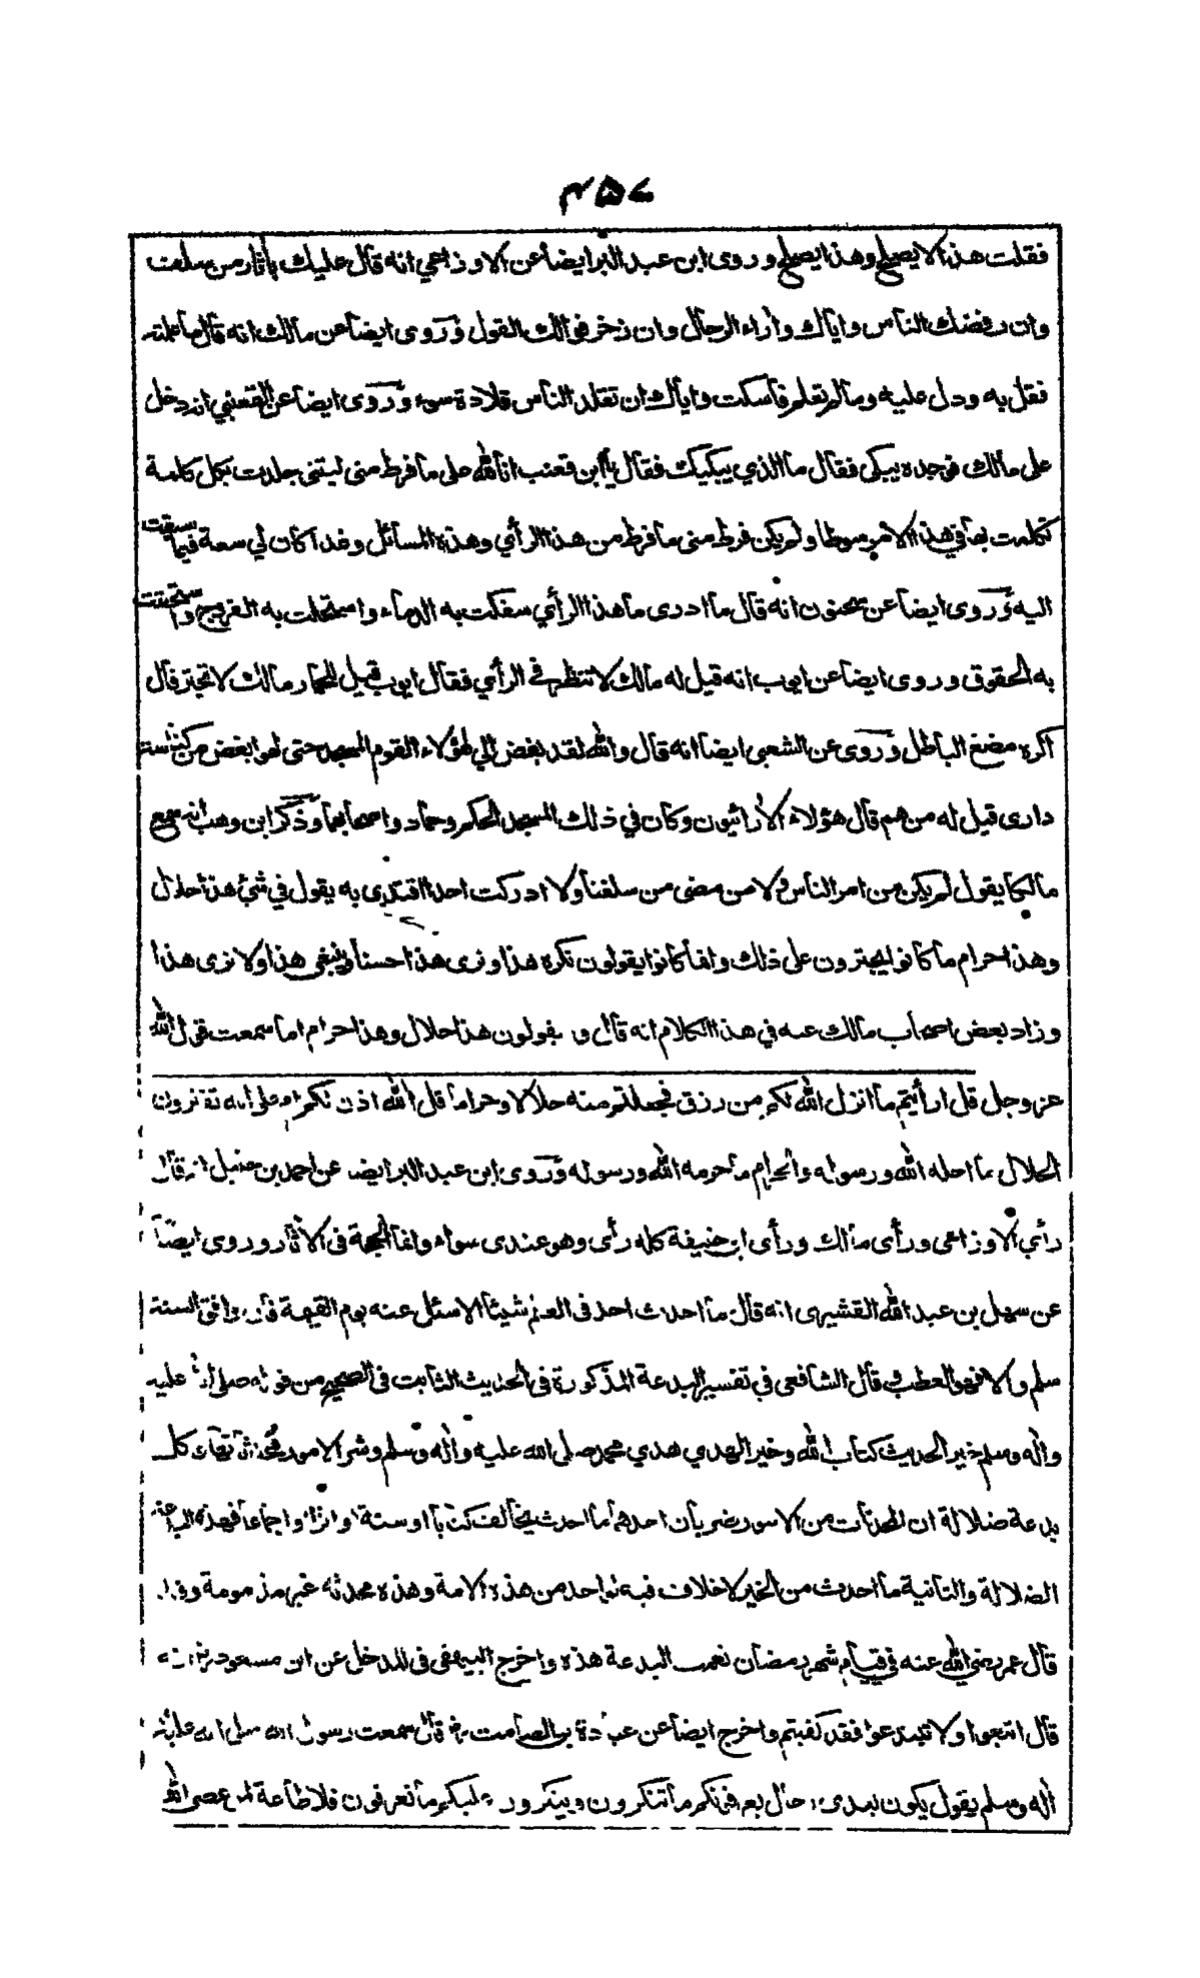 ۳۵۷
فقلت هذا لا يصلح وهذا يصلح وروى ابن عبد البر ايضا عن الاوزاعي انه قال عليك بآثار من سلف
وان رفضك الناس واياك واراء الرجال وان زخرفوا لك القول وروى ايضا عن مالك انه قال ما علمته
فقل به ودل عليه وما لم تعلم فاسكت واياك ان تقلد الناس قلادة سوء وروى ايضا عن القعنبي انه دخل
على مالك فوجده يبكى فقال ما الذي يبكيك فقال يا ابن قعنب انا لله على ما فرط منى ليتنى جلدت بكل كلمة
تكلمت بها في هذا الامر سوطا ولم يكن فرط منى ما فرط من هذا الرأي وهذه المسائل وقد كان لي سعة فيما سبقت
اليه وروى ايضا عن سحنون انه قال ما ادرى ما هذا الرأي سفكت به الدماء واستحلت به الفروج واستحقت
به الحقوق وروى ايضا عن ايوب انه قيل له مالك لا تنظر في الرأي فقال ايوب قيل للحمار مالك لا تجتر قال
اكره مضغ الباطل وروى عن الشعبى ايضا انه قال والله لقد بغض الي هؤلاء القوم المسجد حتى لهو ابغض من كناسة
دارى قيل له من هم قال هؤلاء الأرائيون وكان في ذلك المسجد الحكم وحماد واصحابهما وذكر ابن وهب انه سمع
مالكا يقول لم يكن من امر الناس ولا من مضى من سلفنا ولا ادركت احدا اقتدى به يقول في شئ هذا حلال
وهذا حرام ما كانوا يجترون على ذلك وانما كانوا يقولون نكره هذا ونرى هذا حسنا وينبغى هذا ولا نرى هذا
وزاد بعض اصحاب مالك عنه في هذا الكلام انه قال و يقولون هذا حلال وهذا حرام اما سمعت قول الله
عز وجل قل ارأيتم ما انزل الله لكم من رزق فجعلتم منه حلالا وحراما قل الله اذن لكم ام على الله تفترون
الحلال ما احله الله ورسوله والحرام ما حرمه الله ورسوله وروى ابن عبد البر ايضا عن احمد بن حنبل انه قال
رأي الاوزاعى ورأى مالك ورأى ابى حنيفة كله رأى وهو عندى سواء وانما الحجة فى الآثار وروى ايضا
عن سهل بن عبد الله القشيرى انه قال ما احدث احد فى العلم شيئا الا سئل عنه يوم القيمة فان وافق السنة
سلم والا فهو العطب قال الشافعى في تفسير البدعة المذكورة فى الحديث الثابت فى الصحيح من قوله صلى الله عليه
واله وسلم خير الحديث كتاب الله وخير الهدي هدي محمد صلى الله عليه واله وسلم وشر الامور محدثاتها وكل
بدعة ضلالة ان المحدثات من الامور ضربان احدهما ما احدث يخالف كتابا او سنة او اثرا او اجماعا فهذه البدعة
الضلالة والثانية ما احدث من الخير لا خلاف فيه لواحد من هذه الامة وهذه محدثة غير مذمومة وقد
قال عمر رضي الله عنه في قيام شهر رمضان نعمت البدعة هذه واخرج البيهقى فى المدخل عن ابن مسعود
قال اتبعوا ولا تبتدعوا فقد كفيتم واخرج ايضا عن عبادة بن الصامت قال سمعت رسول الله صلى الله عليه
اله وسلم يقول يكون بعدى رجال يعرفونكم ما تنكرون وينكرون عليكم ما تعرفون فلا طاعة لمن عصى الله